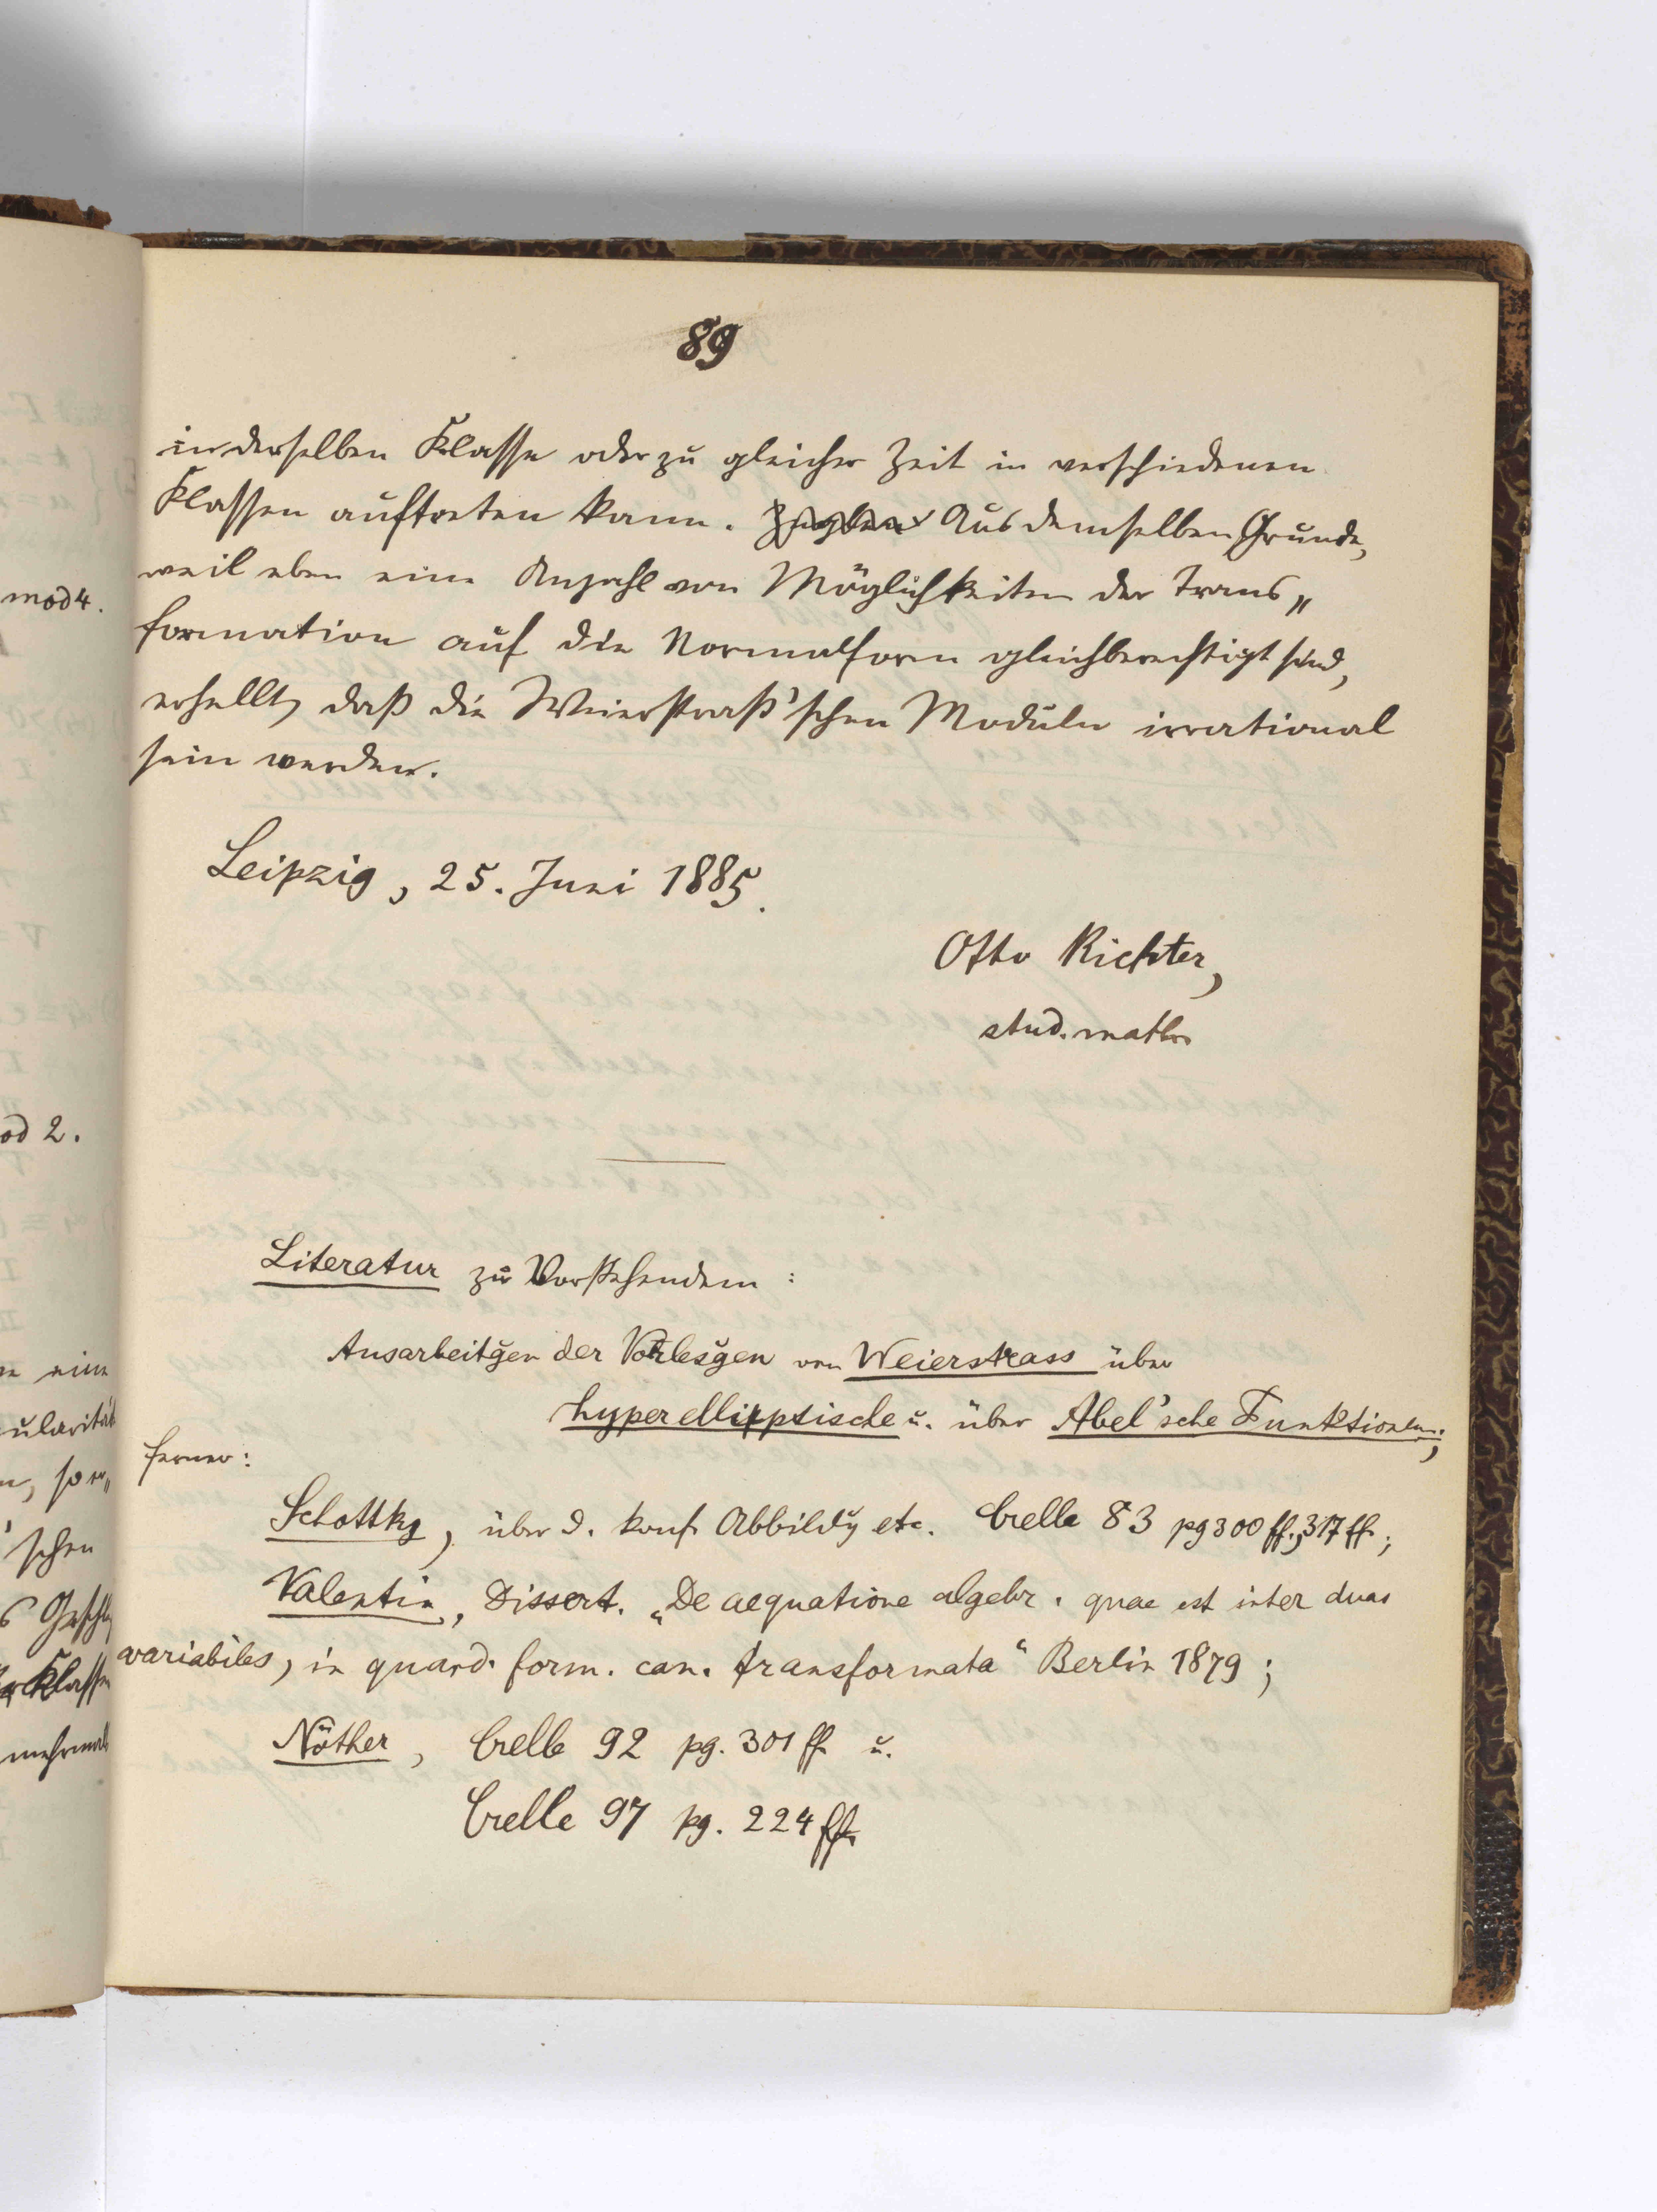 89
in derselben Klasse oder zu gleicher Zeit in verschiedenen
Klassen auftreten kann. Aus demselben Grunde,
weil eben eine Anzahl von Möglichkeiten der Trans„
formation auf die Normalform gleichberechtigt sind,
erhellt, daß die Weierstraß'schen Moduln irrational
sein werden.
Leipzig, 25. Juni 1885.
Otto Richter,
stud. math.
Literatur zu Vorstehendem:
Ausarbeitğen der Vorlesğen von Weierstrass über
hyperelliptische u. über Abel'sche Funktionen;
ferner:
Schottky, über d. konf. Abbildg etc. Crelle 83 pg 300 ff., 317 ff.;
Valentin, Dissert. „De aequatione algebr. quae est inter duas
variabiles, in quand. form. can. transformata“ Berlin 1879;
Nöther, Crelle 92 pg. 301 ff. u.
Crelle 97 pg. 224 ff.
mod 4.
od 2.
eine
ularität
'schen
Klassen
mehrmals